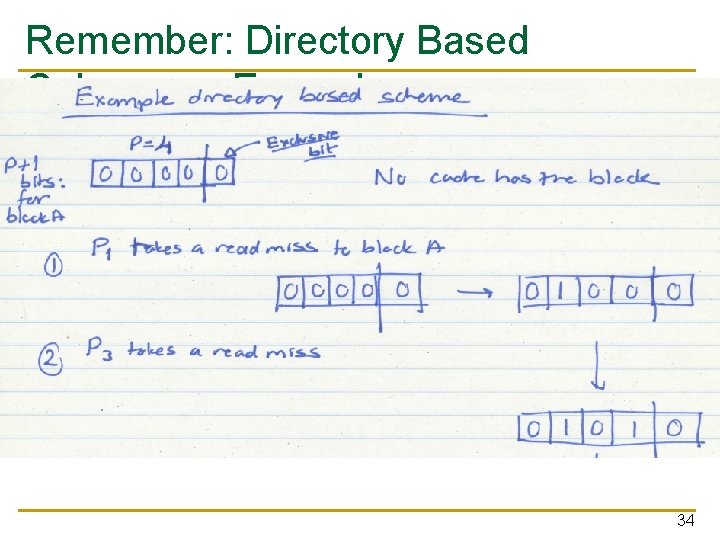 Remember: Directory Based
Example directory based scheme
P=4
Exclusive
bit
P+1
bits:
for
block A
0 0 0 0 0
No cache has the block
① P1 takes a read miss to block A
0 0 0 0 0 → 0 1 0 0 0
② P3 takes a read miss
0 1 0 1 0
34